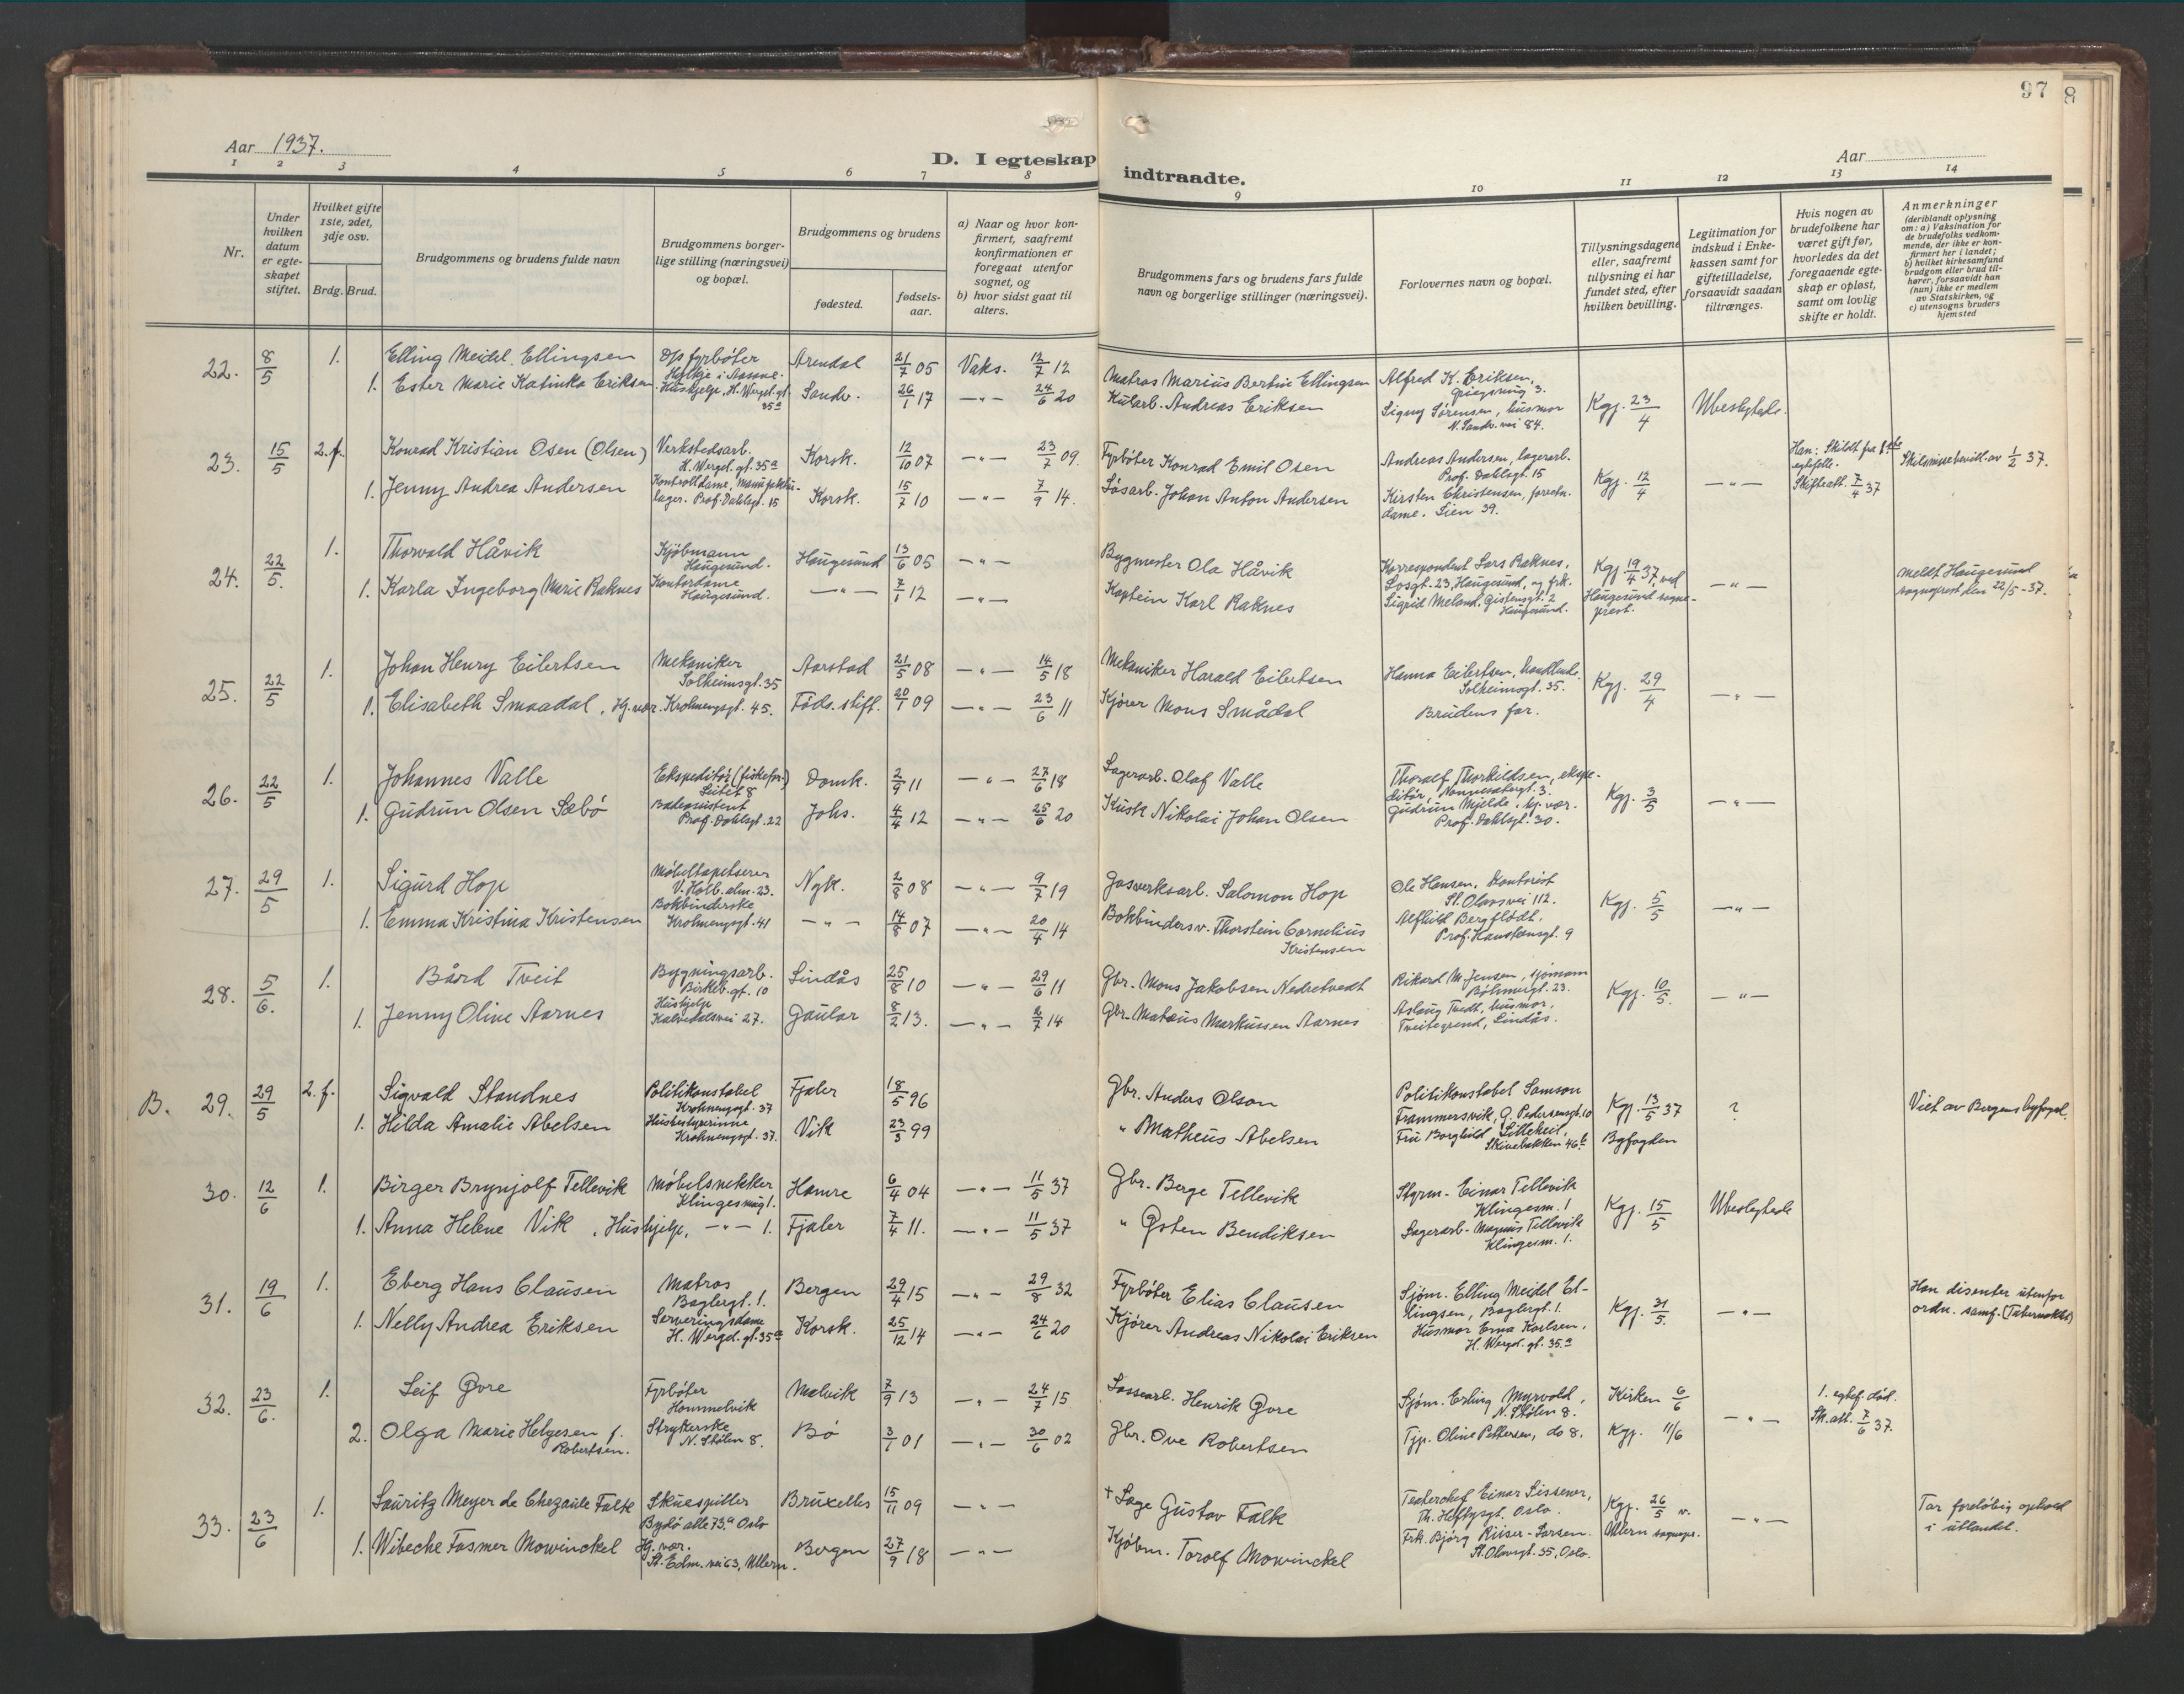 97
8
Aar 1937.
D. I egteskap indtraadte.
Aar
1 2 3 4 5 6 7 8 9 10 11 12 13 14
Nr.
Under hvilken datum er egteskapet stiftet.
Hvilket gifte 1ste, 2det, 3dje osv.
Brdg. Brud.
Brudgommens og brudens fulde navn
Brudgommens borgerlige stilling (næringsvei) og bopæl.
Brudgommens og brudens
fødested.
fødselsaar.
a) Naar og hvor konfirmert, saafremt konfirmationen er foregaat utenfor sognet, og
b) hvor sidst gaat til alters.
Brudgommens fars og brudens fars fulde navn og borgerlige stillinger (næringsvei).
Forlovernes navn og bopæl.
Tillysningsdagene eller, saafremt tillysning ei har fundet sted, efter hvilken bevilling.
Legitimation for indskud i Enkekassen samt for giftetilladelse, forsaavidt saadan tiltrænges.
Hvis nogen av brudefolkene har været gift før, hvorledes da det foregaaende egteskap er opløst, samt om lovlig skifte er holdt.
Anmerkninger
(deriblandt oplysning om: a) Vaksination for de brudefolks vedkommende, der ikke er konfirmert her i landet;
b) hvilket kirkesamfund brudgom eller brud tilhører, forsaavidt han (hun) ikke er medlem av Statskirken, og
c) utensogns bruders hjemsted
22. 8/5 1. Elling Meidel Ellingsen Ds fyrbøter Hylkje i Aasane. Arendal 21/7 05 Vaks. 12/7 12 Matros Marius Bertin Ellingsen Alfred K. Eriksen, 3. Kgj. 23/4 Ubeslegtede.
1. Ester Marie Katinka Eriksen Hushjelp, H. Wergel. gt. 35a Sandv. 26/1 17 —"— 24/6 20 Kularb. Andreas Eriksen Signy Sørensen, husmor N. Sandv. vei 84.
23. 15/5 2. f. Konrad Kristian Osen (Olsen) Verkstedsarb. H. Wergel. gt. 35a Korsk. 12/10 07 —"— 23/7 09. Fyrbøter Konrad Emil Osen Andreas Andersen, lagerarb. Prof. Dahlsgt. 15 Kgj. 12/4 —"— Han: Skildt fra 1ste egtefelle. Skifteatt. 7/4 37 Skilsmissebevill. av 1/2 37.
1. Jenny Andrea Andersen Kontrolldame, lager. Prof. Dahlsgt. 15 Korsk. 15/7 10 —"— 7/9 14. Løsarb. Johan Anton Andersen Kirsten Christensen, forretn. dame. Lien 39.
24. 22/5. 1. Thorvald Håvik Kjøbmann Haugesund. Haugesund 13/6 05 —"— Bygmester Ola Håvik Korrespondent Lars Raknes, Losgt. 23, Haugesund, og frk. Kgj. 19/4 37, ved Haugesund sogneprest. —"— Meldt Haugesund sogneprest den 22/5-37.
1. Karla Ingeborg Marie Raknes Kontordame Haugesund. —"— 7/1 12 —"— Kaptein Karl Raknes Sigrid Meland, Gistensgt. 2 Haugesund.
25. 22/5 1. Johan Henry Eilertsen Mekaniker Solheimsgt. 35 Aarstad 21/5 08 —"— 14/5 18 Mekaniker Harald Eilertsen Hanna Eilertsen, Solheimsgt. 35. Kgj. 29/4 —"—
1. Elisabeth Smaadal, Hj. vær. Krohnengsgt. 45. Føds. stift. 20/1 09 —"— 23/6 11 Kjører Mons Smådal Brudens far.
26. 22/5 1. Johannes Valle Ekspeditør (fiskeforr.) Leitet 8 Domk. 2/9 11 —"— 27/6 18 Lagerarb. Olaf Valle Thoralf Thorkildsen, ekspeditør, 3. Kgj. 3/5 —"—
1. Gudrun Olsen Sæbø Badeassistent Prof. Dahlsgt. 22 Johs. 4/4 12 —"— 25/6 20 Kusk Nikolai Johan Olsen Gudrun Mjelde, hj. vær. Prof. Dahlsgt. 30.
27. 29/5 1. Sigurd Hop Møbeltapetserer V. Holb. alm. 23. Nyk. 2/8 08 —"— 9/7 19 Gasverksarb. Salomon Hop Ole Hansen, Kontorist St. Olavsvei 112. Kgj. 5/5 —"—
1. Emma Kristina Kristensen Bokbinderske Krohnengsgt. 41 —"— 14/8 07 —"— 20/4 14 Bokbindersv. Thorstein Cornelius Kristensen Alfhild Bergflødt, Prof. Hansteensgt. 9
28. 5/6. 1. Bård Tveit Bygningsarb. Birkeb. gt. 10 Lindås 25/8 10 —"— 29/6 11 Gbr. Mons Jakobsen Nedretvedt Rikard M. Jensen, sjømann Bøhmergt. 23. Kgj. 10/5. —"—
1. Jenny Oline Aarnes Hushjelp Kalvedalsvei 27. Gaular 8/2 13. —"— 2/7 14 Gbr. Mataus Markussen Aarnes Aslaug Tvedt, husmor, Tveitegrend, Lindås.
B. 29. 29/5 2. f. Sigvald Standnes Politikonstabel Krohnengsgt. 37 Fjaler 18/5 96 Gbr. Anders Olson Politikonstabel Samson Frammersvik, G. Pedersensgt. 10 Kgj. 13/5 37 ? Viet av Bergens byfogd.
1. Hilda Amalie Abelsen Husbestyrerinne Krohnengsgt. 37. Vik 23/3 99 " Matheus Abelsen Fru Borghild Lilleheil, Skivebakken 46b Byfogden
30. 12/6 1. Birger Brynjolf Tellevik Møbelsnekker Klingesmug 1. Hamre 6/4 04 —"— 11/5 37 Gbr. Berge Tellevik Styrm. Einar Tellevik Klingesm. 1 Kgj. 15/5 Ubeslegtede
1. Anna Helene Vik, Hushjelp, —"— 1. Fjaler 7/4 11. —"— 11/5 37 " Østen Bendiksen Lagerarb. Magnus Tellevik Klingesm. 1.
31. 19/6 1. Eberg Hans Clausen Matros Baglergt. 1. Bergen 29/4 15 —"— 29/8 32 Fyrbøter Elias Clausen Sjøm. Elling Meidel Ellingsen, Baglergt. 1. Kgj. 31/5. —"— Han disenter utenfor ordn. samf. (Tabernaklet)
1. Nelly Andrea Eriksen Serveringsdame H. Wergel. gt. 35a Korsk. 25/12 14 —"— 24/6 20 Kjører Andreas Nikolai Eriksen Husmor Erna Karlsen, H. Wergel. gt. 35.a
32. 23/6. 1. Leif Gvre Fyrbøter Hommelvik Malvik 7/9 13 —"— 24/7 15 Lossearb. Henrik Gvre Sjøm. Erling Myrvold, N. Stølen 8. Kirken 6/6 —"— 1. egtef. død. Sk. att. 7/6 37.
2. Olga Marie Helgesen f. Robertsen. Strykerske N. Stølen 8. Bø 3/1 01 —"— 30/6 02 Gbr. Ove Robertsen Tjp. Oline Pettersen, do 8. Kgj. 11/6
33. 23/6 1. Lauritz Meyer de Chezaule Falk Skuespiller Bygdø alle 73.a Oslo Bruxelles 15/11 09 —"— † Læge Gustav Falk Teaterchef Einar Sissener, Th. Heftysgt. Oslo. Kgj. 26/5 v. Ullern sognepr. —"— Tar foreløbig ophold i utlandet.
1. Wibecke Fasmer Mowinckel Hj. vær. St. Edm. vei 63, Ullern. Bergen 27/9 18 —"— Kjøbm. Torolf Mowinckel Frk. Bjørg Riiser-Larsen. St. Olavsgt. 35, Oslo.